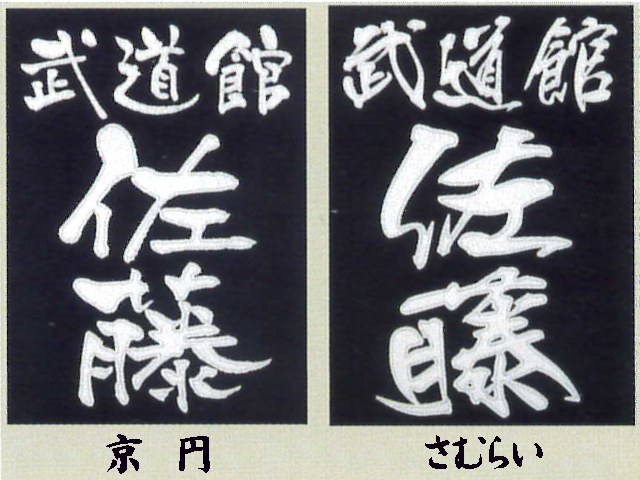 武道館
佐藤
京円
武道館
佐藤
さむらい